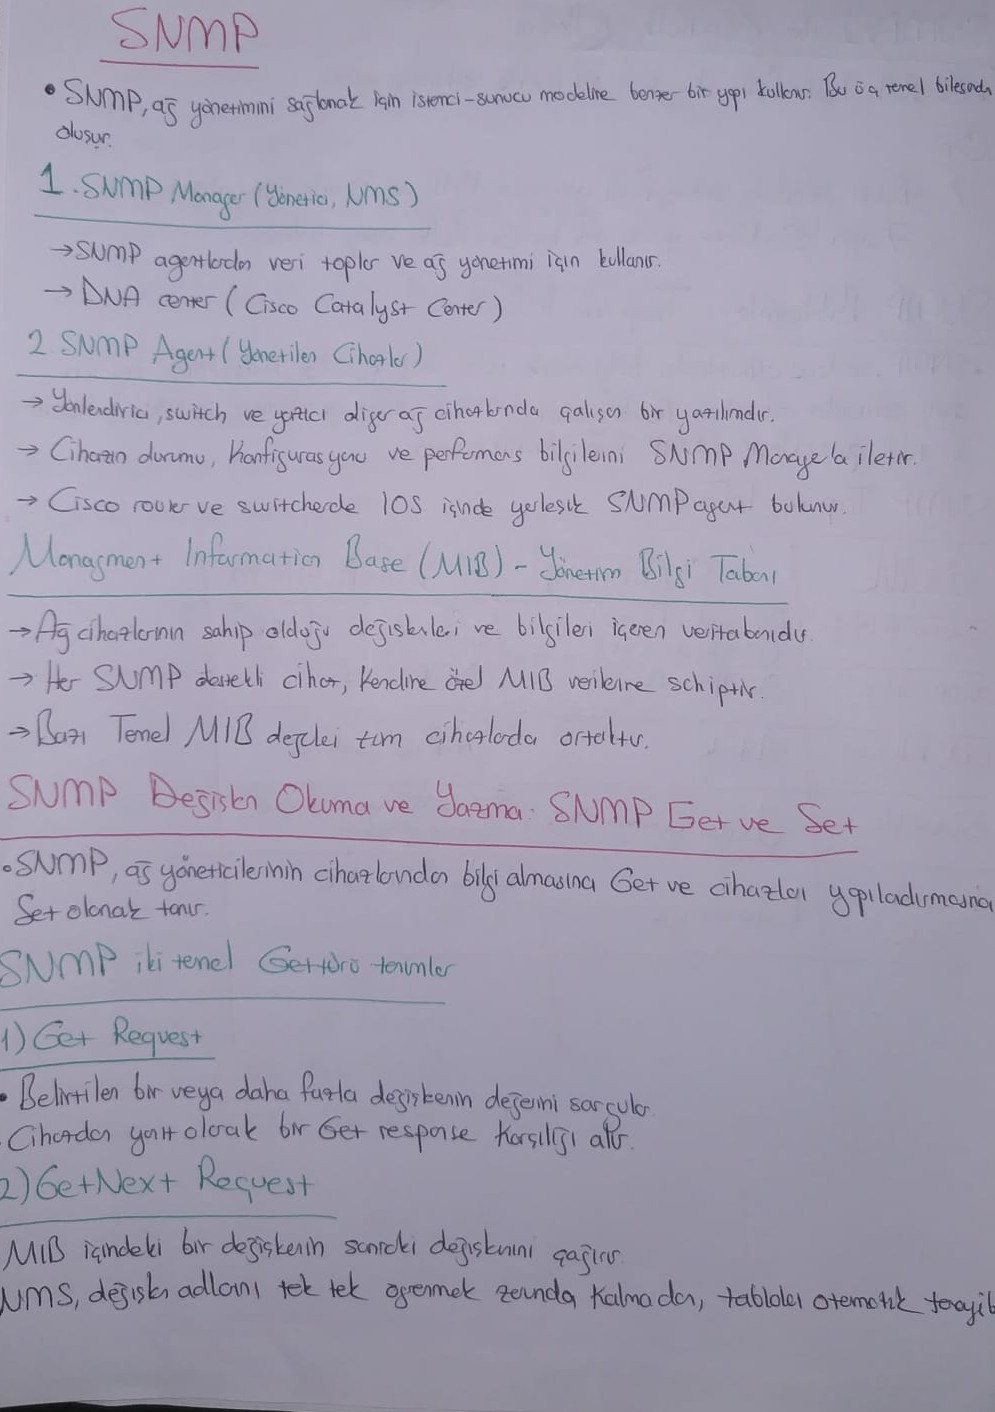 SNMP
• SNMP, ağ yönetimini sağlamak için istemci-sunucu modeline benzer bir yapı kullanır. Bu üç temel bileşenden
oluşur.
1. SNMP Manager (Yönetici, NMS)
→ SNMP agentlardan veri toplar ve ağ yönetimi için kullanır.
→ DNA center ( Cisco Catalyst Center )
2. SNMP Agent ( Yönetilen Cihazlar )
→ Yönlendirici, switch ve yazıcı diğer ağ cihazlarında çalışan bir yazılımdır.
→ Cihazın durumu, Konfigurasyonu ve performans bilgilerini SNMP Manager'a iletir.
→ Cisco router ve switcherde IOS içinde yerleşik SNMP agent bulunur.
Managment Information Base (MIB) - Yönetim Bilgi Tabanı
→ Ağ cihazlarının sahip olduğu değişkenleri ve bilgileri içeren veritabanıdır.
→ Her SNMP destekli cihaz, Kendine özel MIB verilerine sahiptir.
→ Bazı Temel MIB değerleri tüm cihazlarda ortaktır.
SNMP Değişken Okuma ve Yazma: SNMP Get ve Set
• SNMP, ağ yöneticilerinin cihazlarından bilgi almasına Get ve cihazları yapıladırmasına
Set olanak tanır.
SNMP iki temel Get türü tanımlar
1) Get Request
• Belirtilen bir veya daha fazla değişkenin değerini sorgular.
. Cihazdan yanıt olarak bir Get response Karşılığı alır.
2) GetNext Request
MIB içindeki bir değişkenin sonraki değişkenini çağırır.
NMS, değişken adlarını tek tek ögrenmek zorunda Kalmadan, tabloları otomatik tarayib